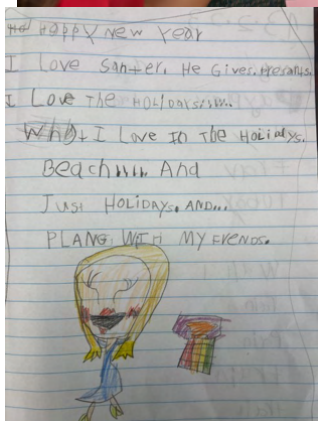 Happy New Year
I Love Santer. He Gives. Presants.
I Love The HOLIDAYSssss..
What I Love In The Holidys.
Beachhhh And
Just HOLIDAYS. AND...
PLANG WITH MY FRENDS.